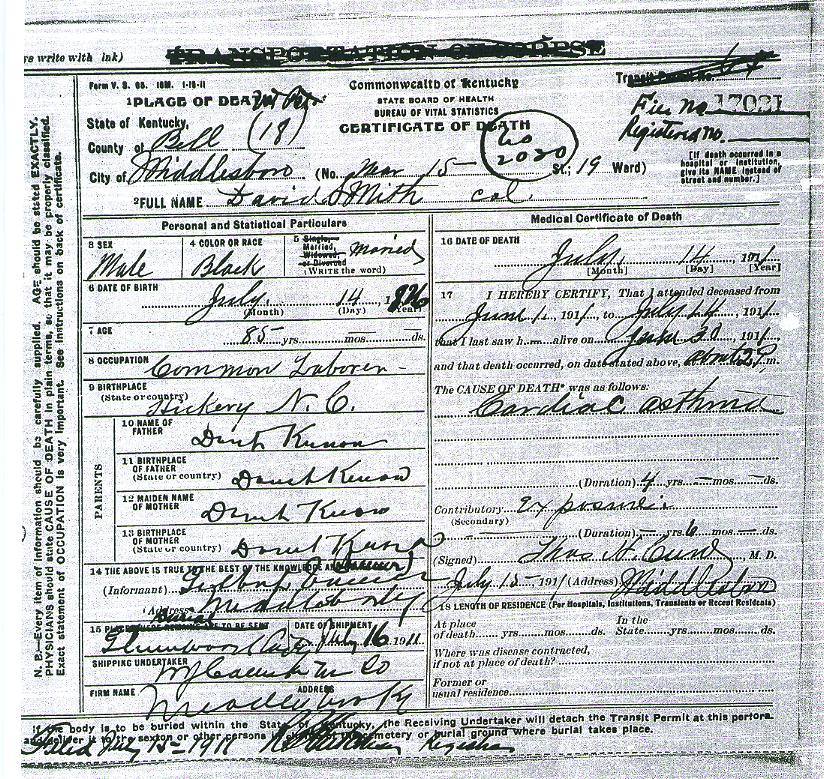 rs write with ink)
TRANSPORTATION OF CORPSE
Form V. S. 65. 10M. 1-19-11
Commonwealth of Kentucky
Transit Permit No.
1 PLACE OF DEATH
STATE BOARD OF HEALTH
BUREAU OF VITAL STATISTICS
File No 17021
State of Kentucky,
CERTIFICATE OF DEATH
Registered no.
County of Bell (18)
60 2020
City of Middlesboro (No. Mar 15- St.; 19 Ward)
[If death occurred in a hospital or institution, give its NAME instead of street and number.]
2 FULL NAME David Smith col
Personal and Statistical Particulars
3 SEX Male
4 COLOR OR RACE Black
5 Single, Married, Widowed, or Divorced (WRITE the word) Married
6 DATE OF BIRTH July 14 1826
(Month) (Day) (Year)
7 AGE 85 yrs. mos. ds.
8 OCCUPATION Common Laborer
9 BIRTHPLACE
(State or country) Hickery N. C.
PARENTS
10 NAME OF FATHER Dont Know
11 BIRTHPLACE OF FATHER (State or country) Dont Know
12 MAIDEN NAME OF MOTHER Dont Know
13 BIRTHPLACE OF MOTHER (State or country) Dont Know
14 THE ABOVE IS TRUE TO THE BEST OF THE KNOWLEDGE
(Informant)
(Address)
15 Burial DATE OF SHIPMENT
July 16 1911
SHIPPING UNDERTAKER
FIRM NAME ADDRESS
Medical Certificate of Death
16 DATE OF DEATH
July 14 1911
[Month] [Day] [Year]
17 I HEREBY CERTIFY, That I attended deceased from
June 1, 1911, to July 14, 1911,
that I last saw h alive on June 30, 1911,
and that death occurred, on date stated above, at about 2 m.
The CAUSE OF DEATH* was as follows:
Cardiac asthma
(Duration) 4 yrs. mos. ds.
Contributory Exposure
(Secondary)
(Duration) yrs. 6 mos. ds.
(Signed) Thos M. D.
July 15- 1911 (Address) Middlesboro
18 LENGTH OF RESIDENCE (For Hospitals, Institutions, Transients or Recent Residents)
At place of death yrs. mos. ds. In the State yrs. mos. ds.
Where was disease contracted, if not at place of death?
Former or usual residence
If the body is to be buried within the State of Kentucky, the Receiving Undertaker will detach the Transit Permit at this perfora-
and deliver it to the sexton or other persons in charge of the cemetery or burial ground where burial takes place.
Filed July 15- 1911 Registrar
N. B.—Every item of information should be carefully supplied. AGE should be stated EXACTLY.
PHYSICIANS should state CAUSE OF DEATH in plain terms, so that it may be properly classified.
Exact statement of OCCUPATION is very important. See instructions on back of certificate.